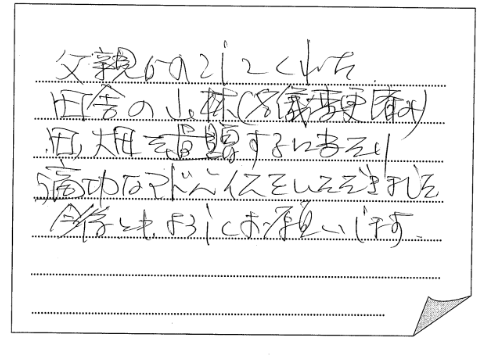 父親がのこしてくれた
田舎の山林(名儀変更済み)
田、畑を
するにあたり
適切なアドバイスをいただきました
今後ともよろしくお願いします。